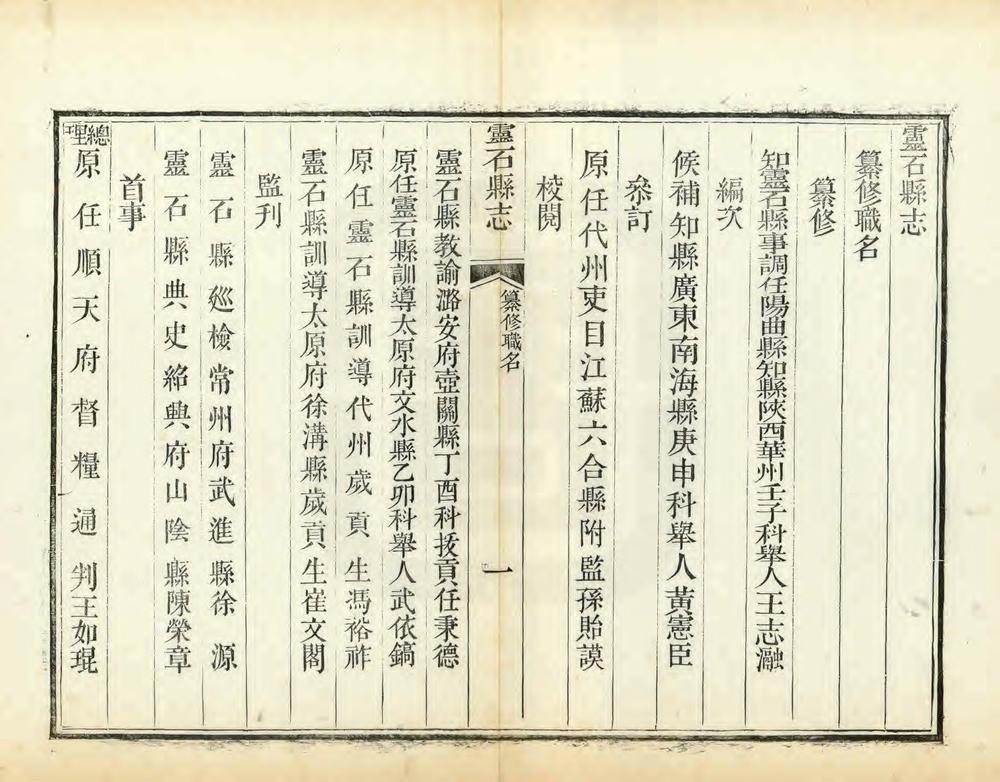 靈石縣志
纂修職名
纂修
知靈石縣事調任陽曲縣知縣陝西華州壬子科舉人王志瀜
編次
候補知縣廣東南海縣庚申科舉人黃憲臣
叅訂
原任代州吏目江蘇六合縣附監孫貽謨
校閱
靈石縣志 纂修職名 一
靈石縣教諭潞安府壺關縣丁酉科拔貢任秉德
原任靈石縣訓導太原府文水縣乙卯科舉人武依鎬
原任靈石縣訓導代州歲貢生馮裕祚
靈石縣訓導太原府徐溝縣歲貢生崔文閣
監刋
靈石縣廵檢常州府武進縣徐源
靈石縣典史紹興府山陰縣陳榮章
首事
總理原任順天府督糧通判王如琨